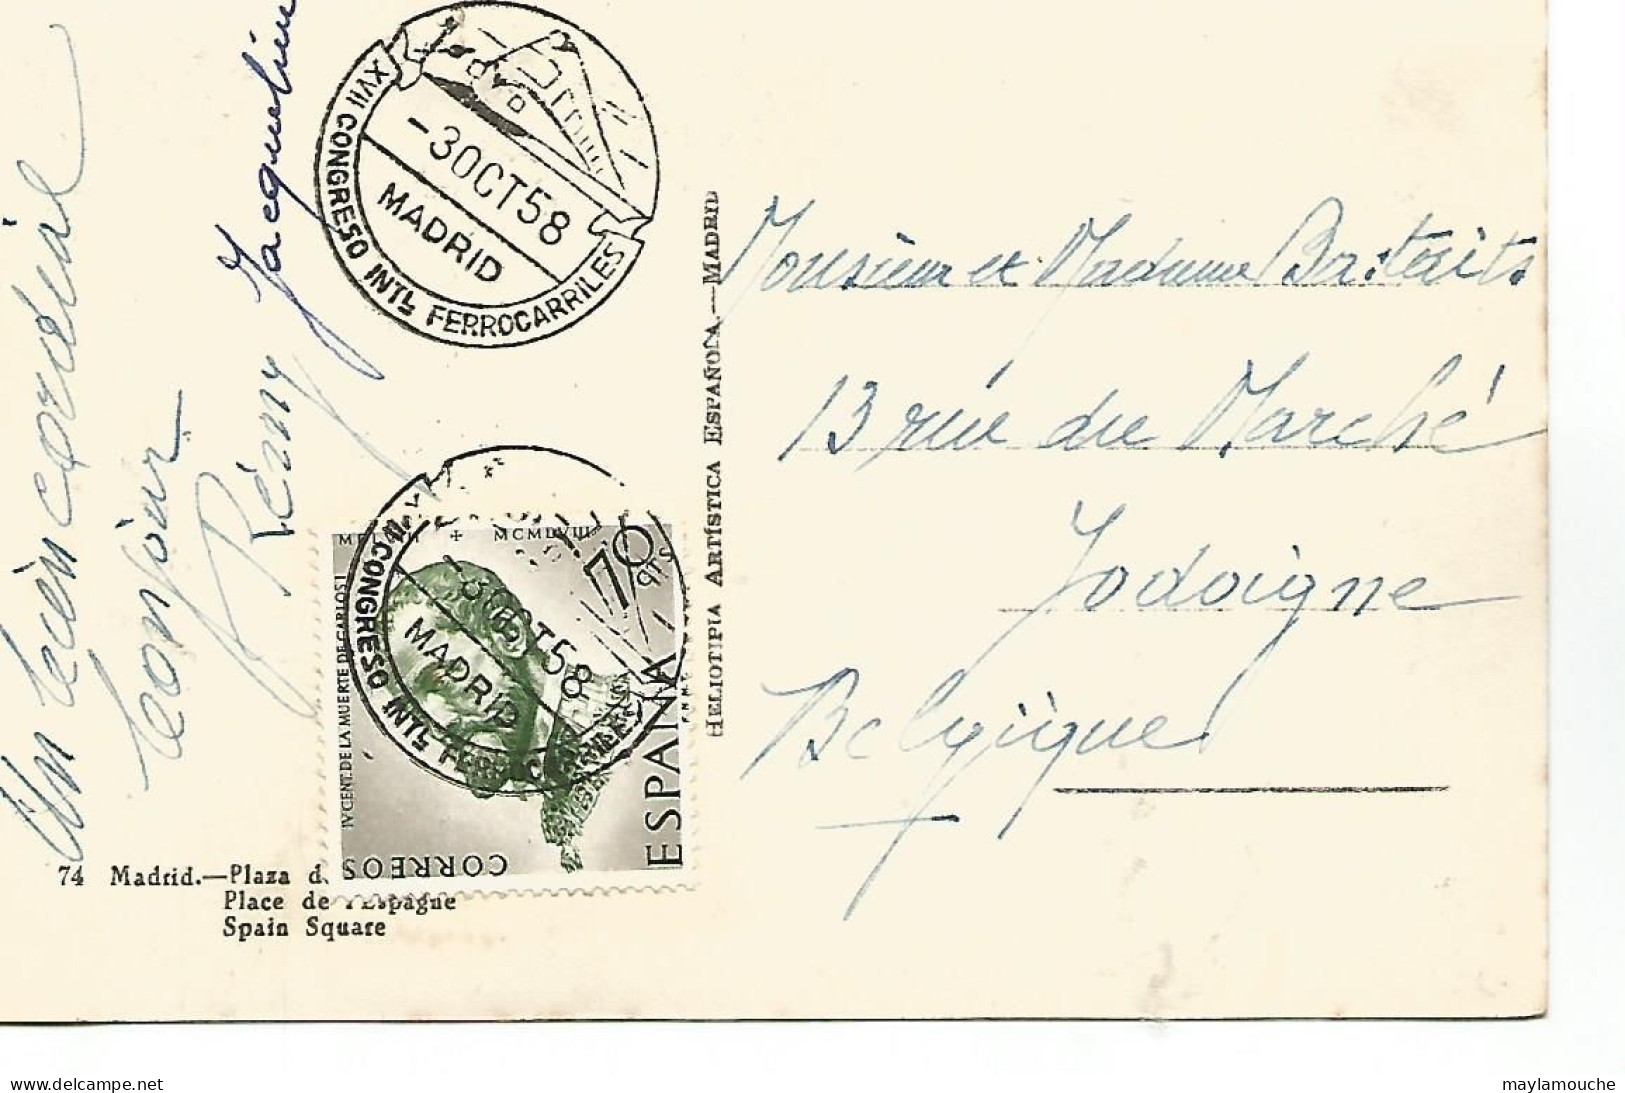 Un bien cordial
bonjour
Rémy Jacqueline
XVII CONGRESO INTL FERROCARRILES
-3 OCT 58
MADRID
HELIOTIPIA ARTÍSTICA ESPAÑOLA.—MADRID
Monsieur et Madame Bastaits
13 rue du Marché
Jodoigne
Belgique
MCMLVIII
70 CTS
IV CENT. DE LA MUERTE DE CARLOS I
CORREOS
ESPAÑA
II CONGRESO INTL FERROCARRILES
-3 OCT 58
MADRID
74 Madrid.—Plaza d
Place de l'Espagne
Spain Square
delcampe.net
maylamouche